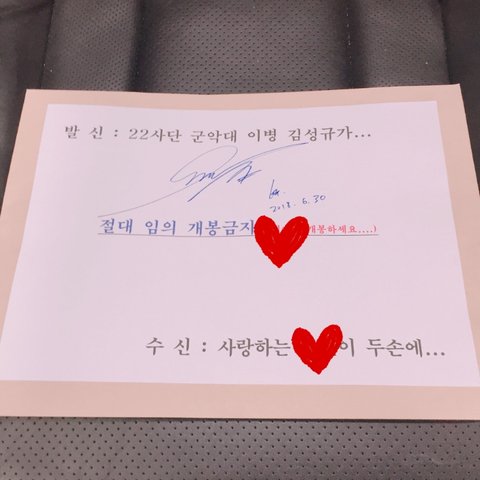 발 신 : 22사단 군악대 이병 김성규가...
2018. 6. 30
절대 임의 개봉금지
개봉하세요....)
수 신 : 사랑하는 이 두손에...